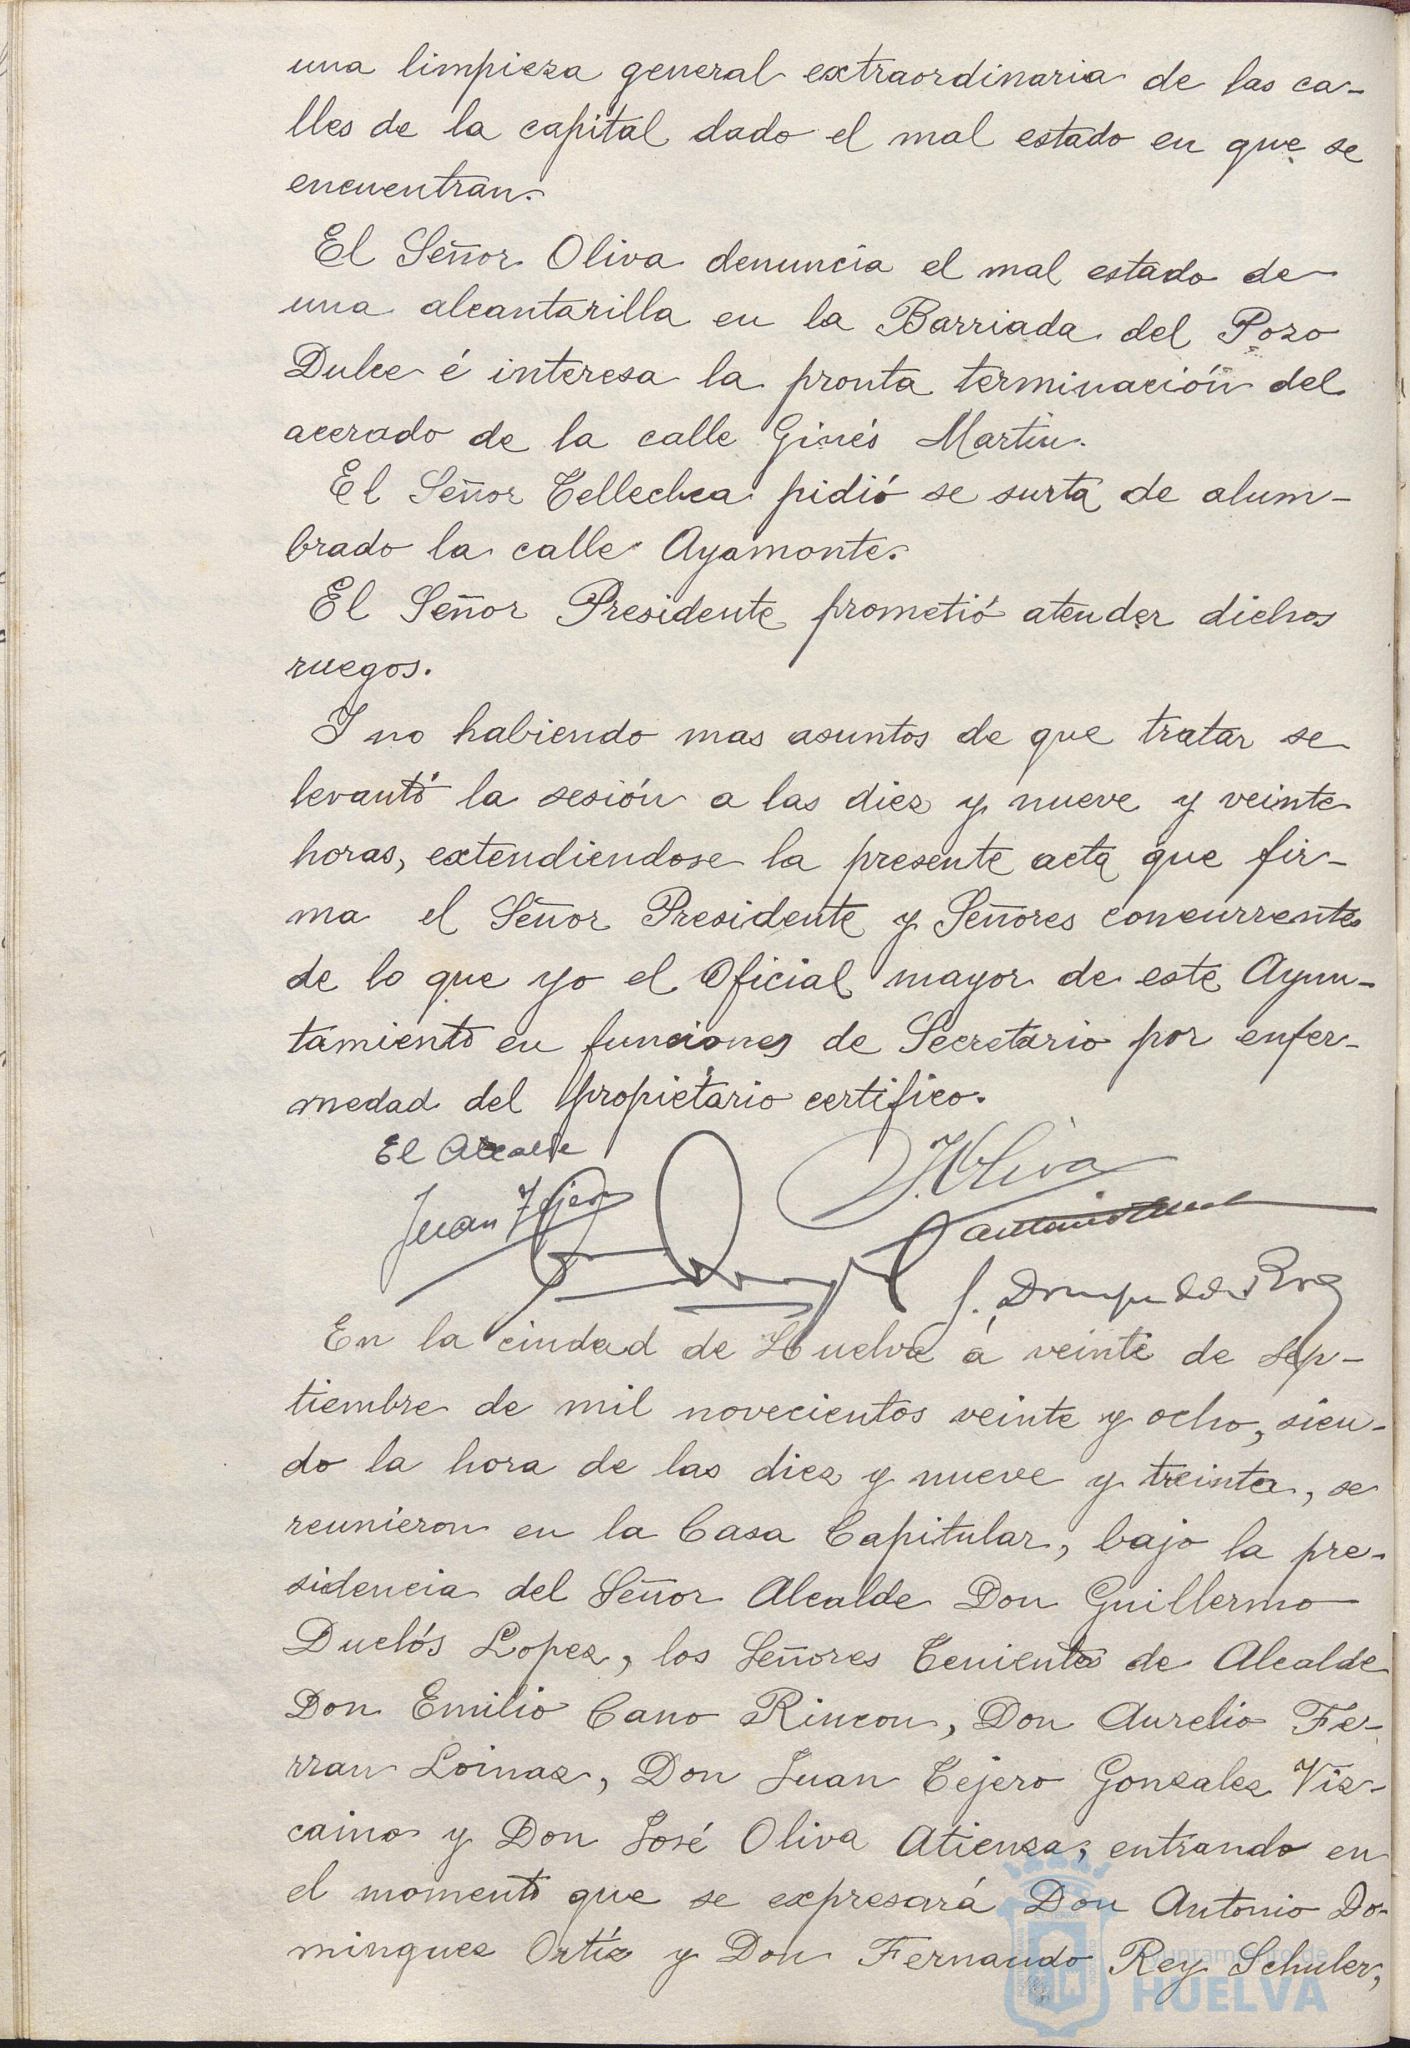 una limpieza general extraordinaria de las ca-
lles de la capital dado el mal estado en que se
encuentran.
El Señor Oliva denuncia el mal estado de
una alcantarilla en la Barriada del Pozo
Dulce é interesa la pronta terminación del
acerado de la calle Ginés Martin.
El Señor Tellechea pidió se surta de alum-
brado la calle Ayamonte.
El Señor Presidente prometió atender dichos
ruegos.
Y no habiendo mas asuntos de que tratar se
levantó la sesión a las diez y nueve y veinte
horas, extendiendose la presente acta que fir-
ma el Señor Presidente y Señores concurrentes
de lo que yo el Oficial mayor de este Ayun-
tamiento en funciones de Secretario por enfer-
medad del propietario certifico.
El Alcalde
Juan Tejero
J. Oliva
Antonio
J.
En la ciudad de Huelva á veinte de sep-
tiembre de mil novecientos veinte y ocho, sien-
do la hora de las diez y nueve y treinta, se
reunieron en la Casa Capitular, bajo la pre-
sidencia del Señor Alcalde Don Guillermo
Duclós Lopez, los Señores Tenientes de Alcalde
Don Emilio Cano Rincon, Don Aurelio Fe-
rran Loinaz, Don Juan Tejero Gonzalez Viz-
caino y Don José Oliva Atienza, entrando en
el momento que se expresará Don Antonio Do-
minguez Ortíz y Don Fernando Rey Schuler,
Ayuntamiento de
HUELVA